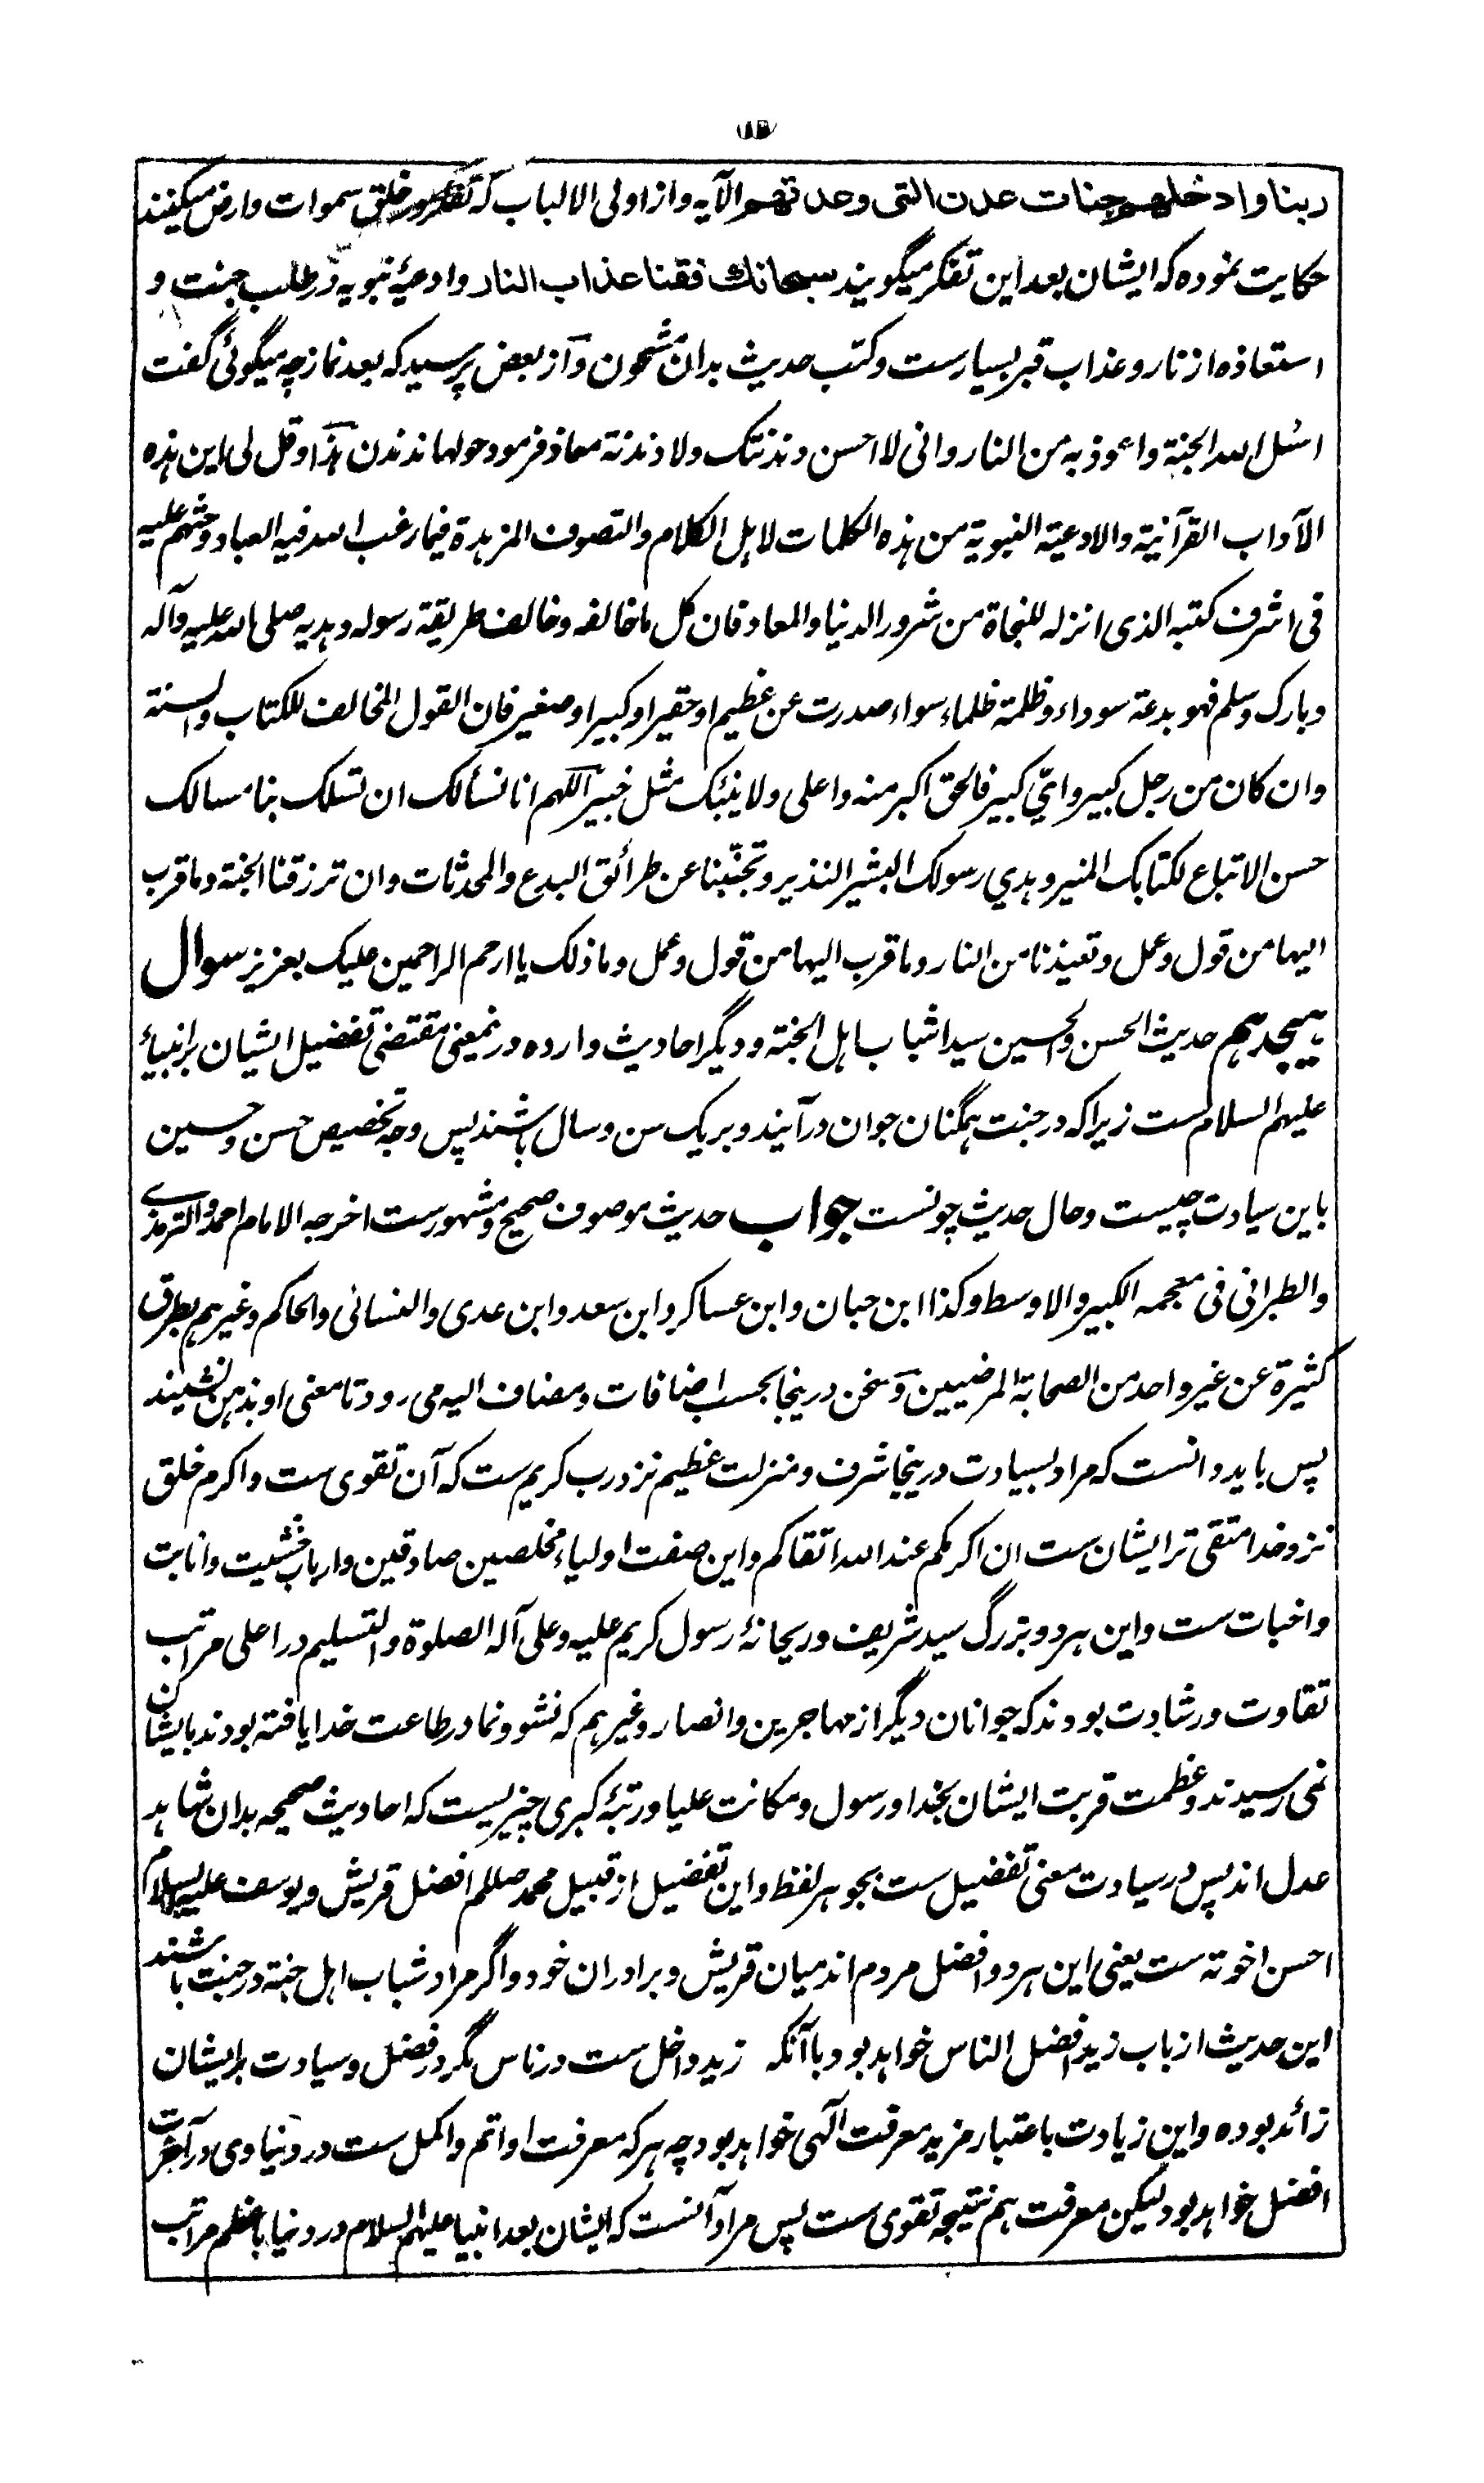 ربنا وادخلهم جنات عدن التی وعدتهم الآیه و از اولی الالباب که تفکر در خلق سموات و ارض میکنند
حکایت نموده که ایشان بعد این تفکر میگویند سبحانک فقنا عذاب النار و ادعیۀ نبویه در طلب جنت و
استعاذه از نار و عذاب قبر بسیارست و کتب حدیث بدان مشحون و از بعض پرسید که بعد نماز چه میگوئی گفت
اسئل الله الجنة و اعوذ به من النار و انی لا احسن دندنتک و لا دندنة معاذ فرمود حولها ندندن هذا و قل لی این هذه
الآداب القرآنیة والادعیة النبویة من هذه الکلمات لاهل الکلام والتصوف المزهدة فیما رغب الله فیه العباد وحثهم علیه
فی اشرف کتبه الذی انزله للنجاة من شرور الدنیا والمعاد فان کل ما خالفه و خالف طریقة رسوله و هدیه صلی الله علیه و آله
و بارک و سلم فهو بدعة سوداء و ظلمة ظلماء سواء صدرت عن عظیم او حقیر او کبیر او صغیر فان القول المخالف للکتاب والسنة
و ان کان من رجل کبیر و ایّ کبیر فالحق اکبر منه و اعلی و لا ینبئک مثل خبیر اللهم انا نسألک ان تسلک بنا مسالک
حسن الاتباع لکتابک المنیر و هدی رسولک البشیر النذیر و تجنّبنا عن طرائق البدع والمحدثات و ان ترزقنا الجنة و ما قرب
الیها من قول و عمل و تعیذنا من النار و ما قرب الیها من قول و عمل و ما ذلک یا ارحم الراحمین علیک بعزیز سوال
هیجدهم حدیث الحسن والحسین سیدا شباب اهل الجنة و دیگر احادیث وارده درینمعنی مقتضی تفضیل ایشان بر انبیاءٔ
علیهم السلام ست زیرا که در جنت همگنان جوان درآیند و بر یک سن و سال باشند پس وجه تخصیص حسن و حسین
باین سیادت چیست و حال حدیث چونست جواب حدیث موصوف صحیح و مشهورست اخرجه الامام احمد والترمذی
والطبرانی فی معجمه الکبیر والاوسط وکذا ابن حبان و ابن عساکر و ابن سعد و ابن عدی والنسائی والحاکم و غیرهم بطرق
کثیرة عن غیر واحد من الصحابة المرضیین و سخن درینجا بحسب اضافات و مضاف الیه می رود تا معنی او بذهن نشیند
پس باید دانست که مراد بسیادت درینجا شرف و منزلت عظیم نزد رب کریم ست که آن تقوی ست و اکرم خلق
نزد خدا متقی تر ایشان ست ان اکرمکم عند الله اتقاکم و این صفت اولیاء مخلصین صادقین و ارباب خشیت و انابت
و اخبات ست و این هر دو بزرگ سید شریف و ریحانۀ رسول کریم علیه و علی آله الصلوة والتسلیم در اعلی مراتب
تقاوت و رشادت بودند که جوانان دیگر از مهاجرین و انصار و غیرهم که نشو و نما در طاعت خدا یافته بودند بایشان
نمی رسیدند و عظمت قربت ایشان بخدا و رسول و مکانت علیا و رتبۀ کبری چیزیست که احادیث صحیحه بدان شاهد
عدل اند پس در سیادت معنی تفضیل ست بجوهر لفظ و این تفضیل از قبیل محمد صللم افضل قریش و یوسف علیه السلام
احسن اخوته ست یعنی این هر دو افضل مردم اند میان قریش و برادران خود و اگر مراد شباب اهل جنة در جنت باشند
این حدیث از باب زید افضل الناس خواهد بود با آنکه زید داخل ست در ناس مگر در فضل و سیادت بر ایشان
زائد بوده و این زیادت باعتبار مزید معرفت الهی خواهد بود چه هر که معرفت او اتم و اکمل ست در دنیا وی در آخرت
افضل خواهد بود لیکن معرفت هم نتیجه تقوی ست پس مراد آنست که ایشان بعد انبیا علیهم السلام در دنیا باعظم مراتب